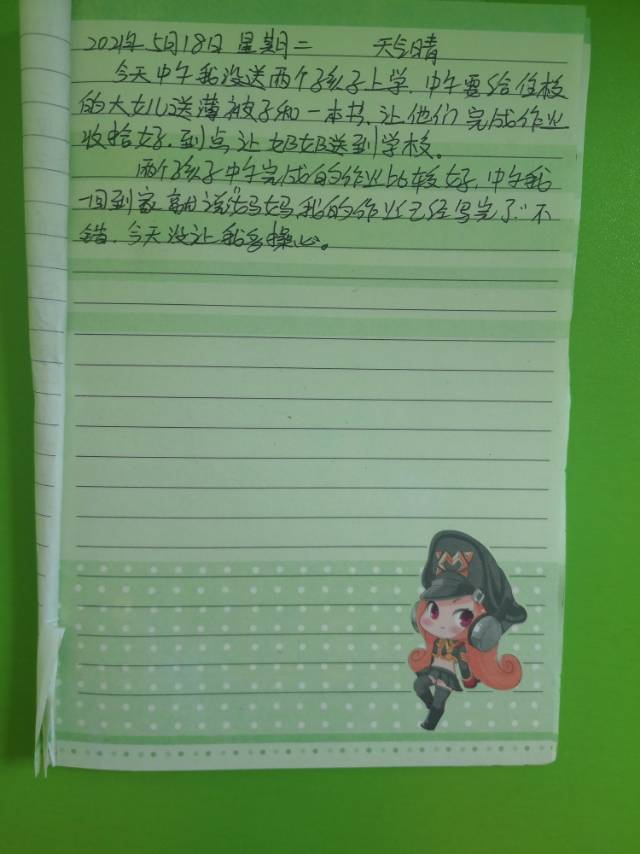 2021年5月18日 星期二 天气晴
今天中午我没送两个孩子上学，中午要给住校
的大女儿送薄被子和一本书，让他们完成作业
收拾好，到点让奶奶送到学校。
两个孩子中午完成的作业比较好，中午我
一回到家就说"妈妈我的作业已经写完了"不
错，今天没让我多操心。